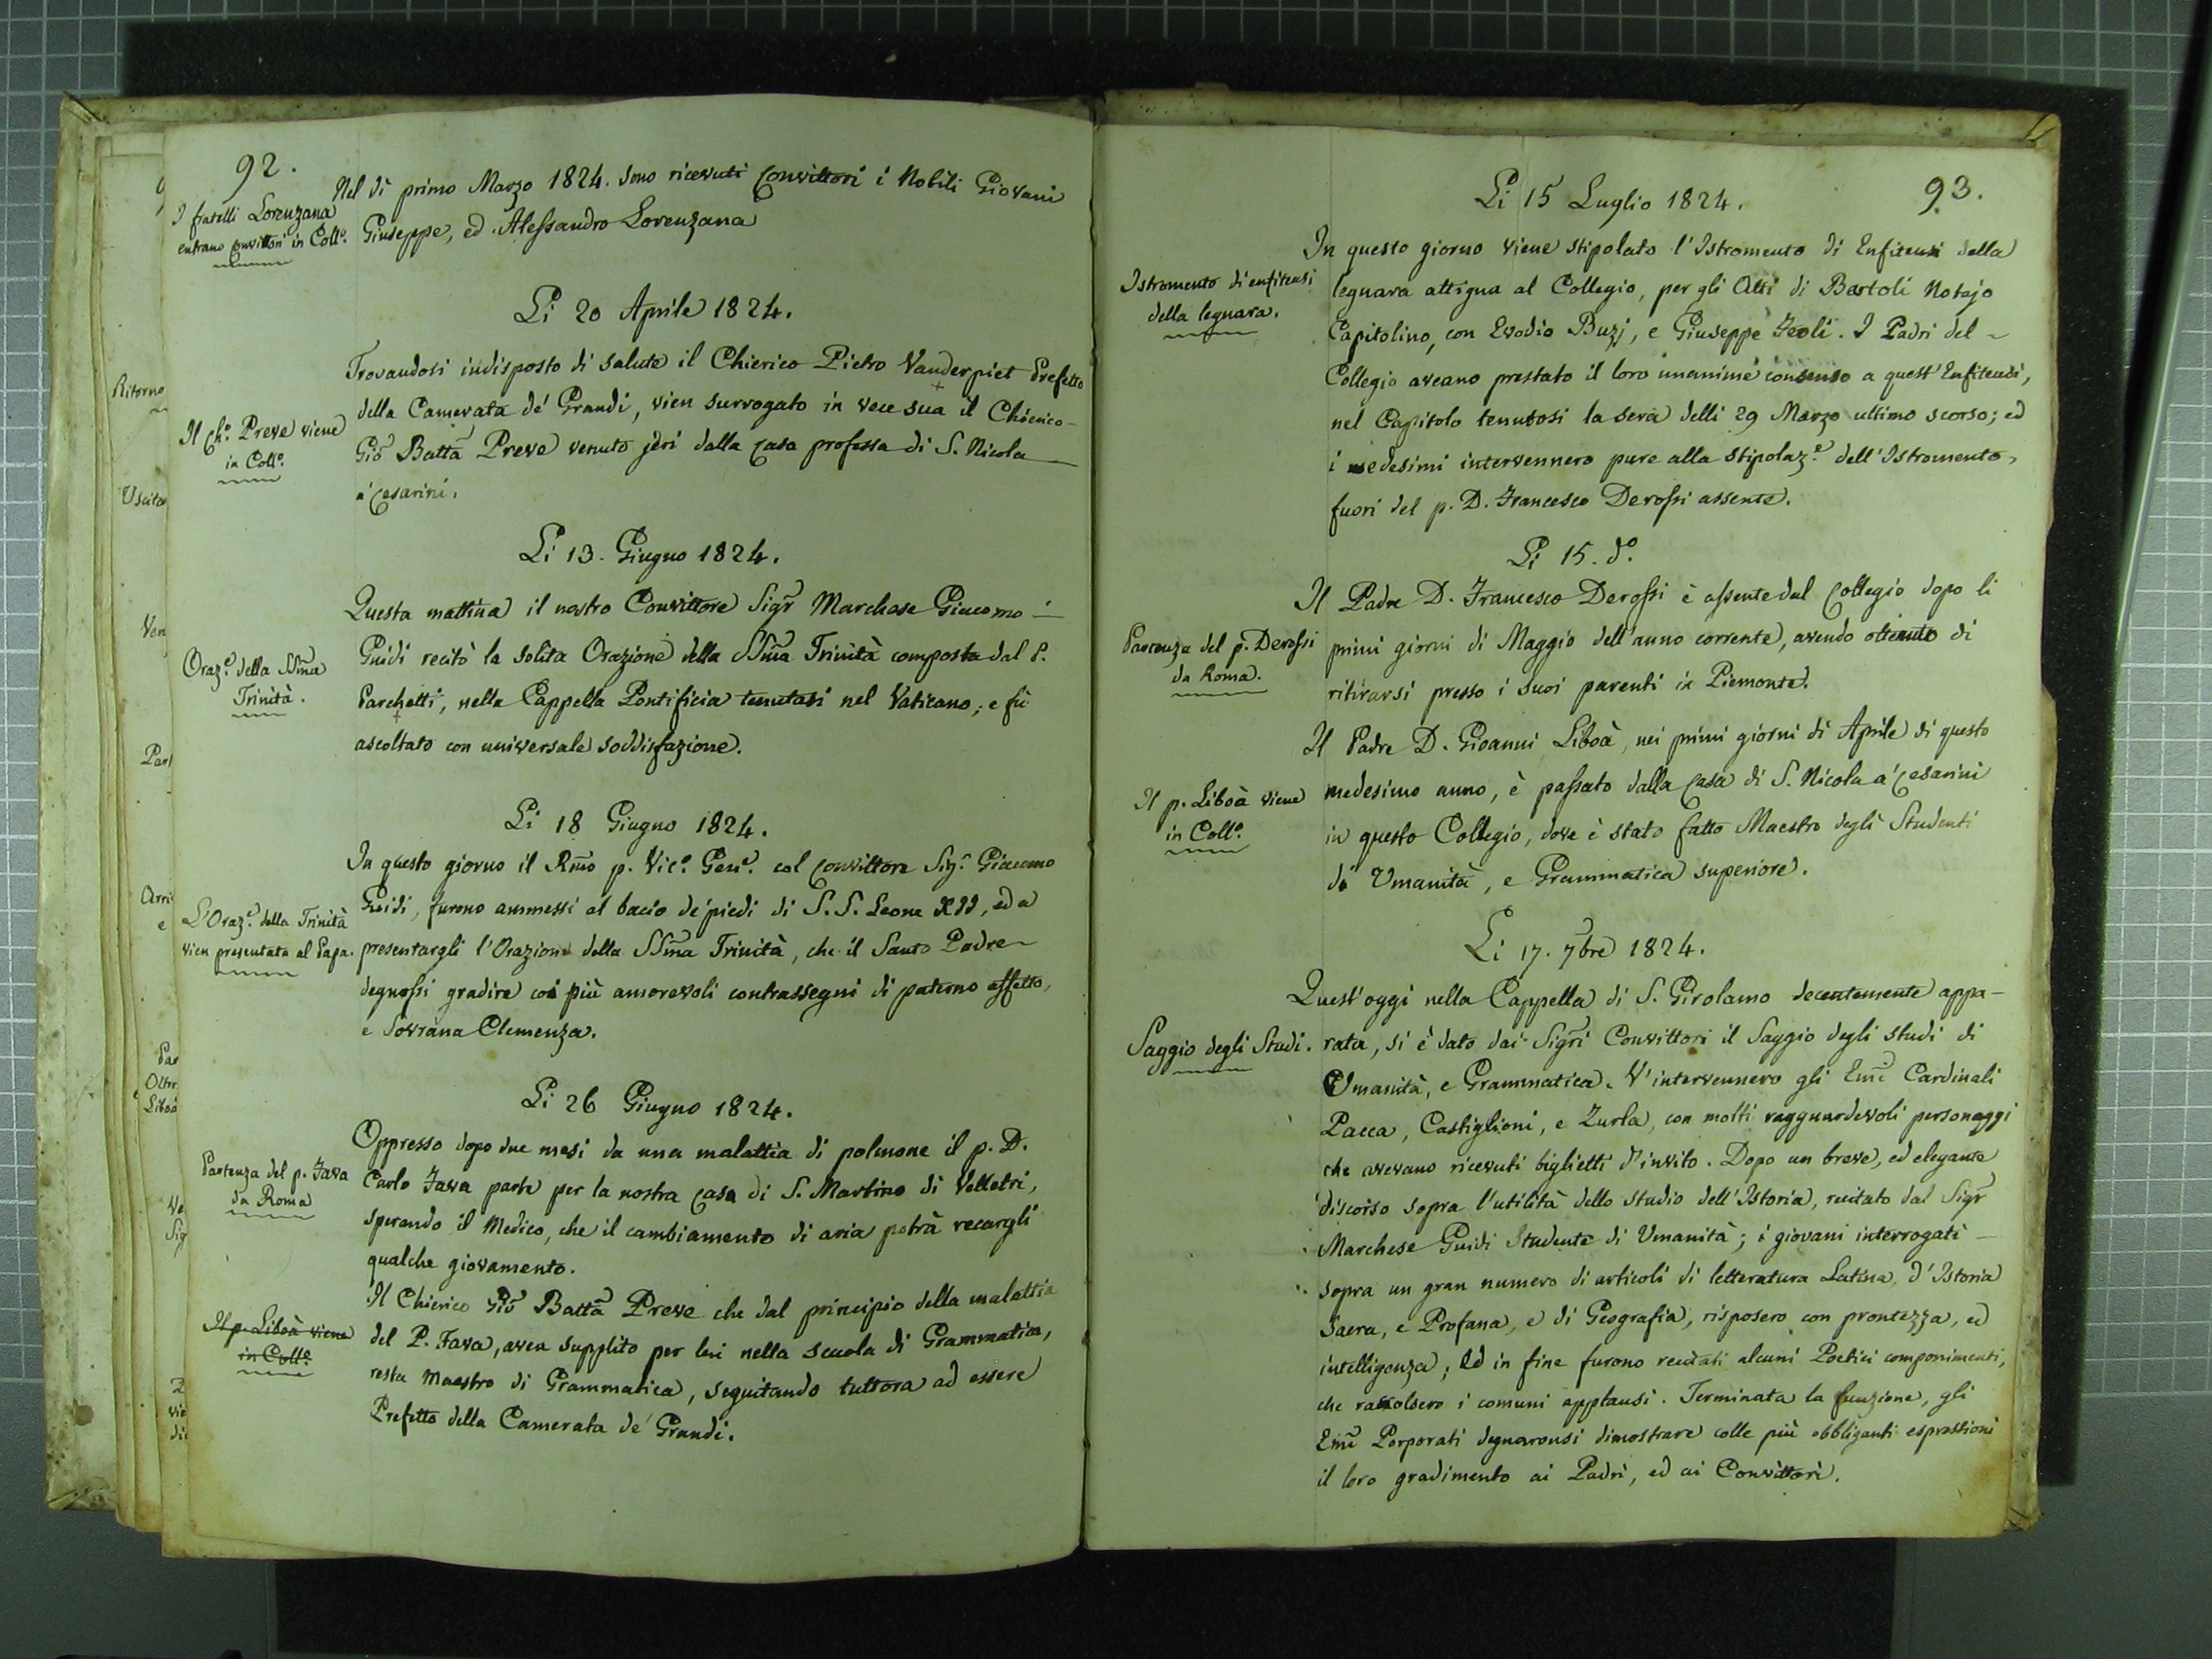 92.
I fratelli Lorenzana
entrano Convittori in Collo.
Nel dì primo Marzo 1824. sono ricevuti Convittori i Nobili Giovani
Giuseppe, ed Alessandro Lorenzana
Li 20 Aprile 1824.
Il Cho. Preve viene
in Collo.
Trovandosi indisposto di salute il Chierico Pietro Vanderpiet Prefetto
della Camerata de' Grandi, vien surrogato in vece sua il Chierico
Gio Batta Preve venuto jeri dalla Casa professa di S. Nicola
a' Cesarini.
Li 13. Giugno 1824.
Oraze. della SSma
Trinità.
Questa mattina il nostro Convittore Sigr Marchese Giacomo
Guidi recitò la solita Orazione della SSma Trinità composta dal P.
Parchetti, nella Cappella Pontificia tenutasi nel Vaticano; e fù
ascoltato con universale soddisfazione.
Li 18 Giugno 1824.
L'Oraze. della Trinità
vien presentata al Papa.
In questo giorno il Rmo p. Vico. Gene. col Convittore Sigr. Giacomo
Guidi, furono ammessi al bacio de' piedi di S. S. Leone XII, ed a
presentargli l'Orazione della SSma Trinità, che il Santo Padre
degnossi gradire coi più amorevoli contrassegni di paterno affetto,
e Sovrana Clemenza.
Li 26 Giugno 1824.
Partenza del p. Fava
da Roma
Oppresso dopo due mesi da una malattia di polmone il p. D.
Carlo Fava parte per la nostra Casa di S. Martino di Velletri,
sperando il Medico, che il cambiamento di aria potrà recargli
qualche giovamento.
Il p. Liboà viene
in Collo.
Il Chierico Gio Batta Preve che dal principio della malattia
del P. Fava, avea supplito per lui nella scuola di Grammatica,
resta Maestro di Grammatica, seguitando tuttora ad essere
Prefetto della Camerata de' Grandi.
Ritorno
Uscita
Ven
Par
Arri
e
Par
Oltr
Liboà
Ve
Sig
vie
93.
Li 15 Luglio 1824.
Istromento di enfiteusi
della legnara.
In questo giorno viene stipolato l'Istromento di Enfiteusi della
legnara attigua al Collegio, per gli Atti di Bartoli Notajo
Capitolino, con Evodio Buzj, e Giuseppe Feoli. I Padri del
Collegio aveano prestato il loro unanime consenso a quest'Enfiteusi,
nel Capitolo tenutosi la sera delli 29 Marzo ultimo scorso; ed
i medesimi intervennero pure alla stipolaze. dell'Istromento,
fuori del p. D. Francesco Derossi assente.
Li 15. do.
Partenza del p. Derossi
da Roma.
Il Padre D. Francesco Derossi è assente dal Collegio dopo li
primi giorni di Maggio dell'anno corrente, avendo ottenuto di
ritirarsi presso i suoi parenti in Piemonte.
Il p. Liboà viene
in Collo.
Il Padre D. Gioanni Liboà, nei primi giorni di Aprile di questo
medesimo anno, è passato dalla Casa di S. Nicola a' Cesarini
in questo Collegio, dove è stato fatto Maestro degli Studenti
di Umanità, e Grammatica superiore.
Li 17. 7bre 1824.
Saggio degli Studi.
Quest'oggi nella Cappella di S. Girolamo decentemente appa-
rata, si è dato dai Sigri Convittori il Saggio degli studi di
Umanità, e Grammatica. V'intervennero gli Emi Cardinali
Pacca, Castiglioni, e Zurla, con molti ragguardevoli personaggi
che avevano ricevuti biglietti d'invito. Dopo un breve, ed elegante
discorso sopra l'utilità dello studio dell'Istoria, recitato dal Sigr
Marchese Guidi Studente di Umanità; i giovani interrogati
sopra un gran numero di articoli di letteratura Latina, d'Istoria
Sacra, e Profana, e di Geografia, risposero con prontezza, ed
intelligenza; ed in fine furono recitati alcuni Poetici componimenti,
che raccolsero i comuni applausi. Terminata la funzione, gli
Emi Porporati degnaronsi dimostrare colle più obbliganti espressioni
il loro gradimento ai Padri, ed ai Convittori.